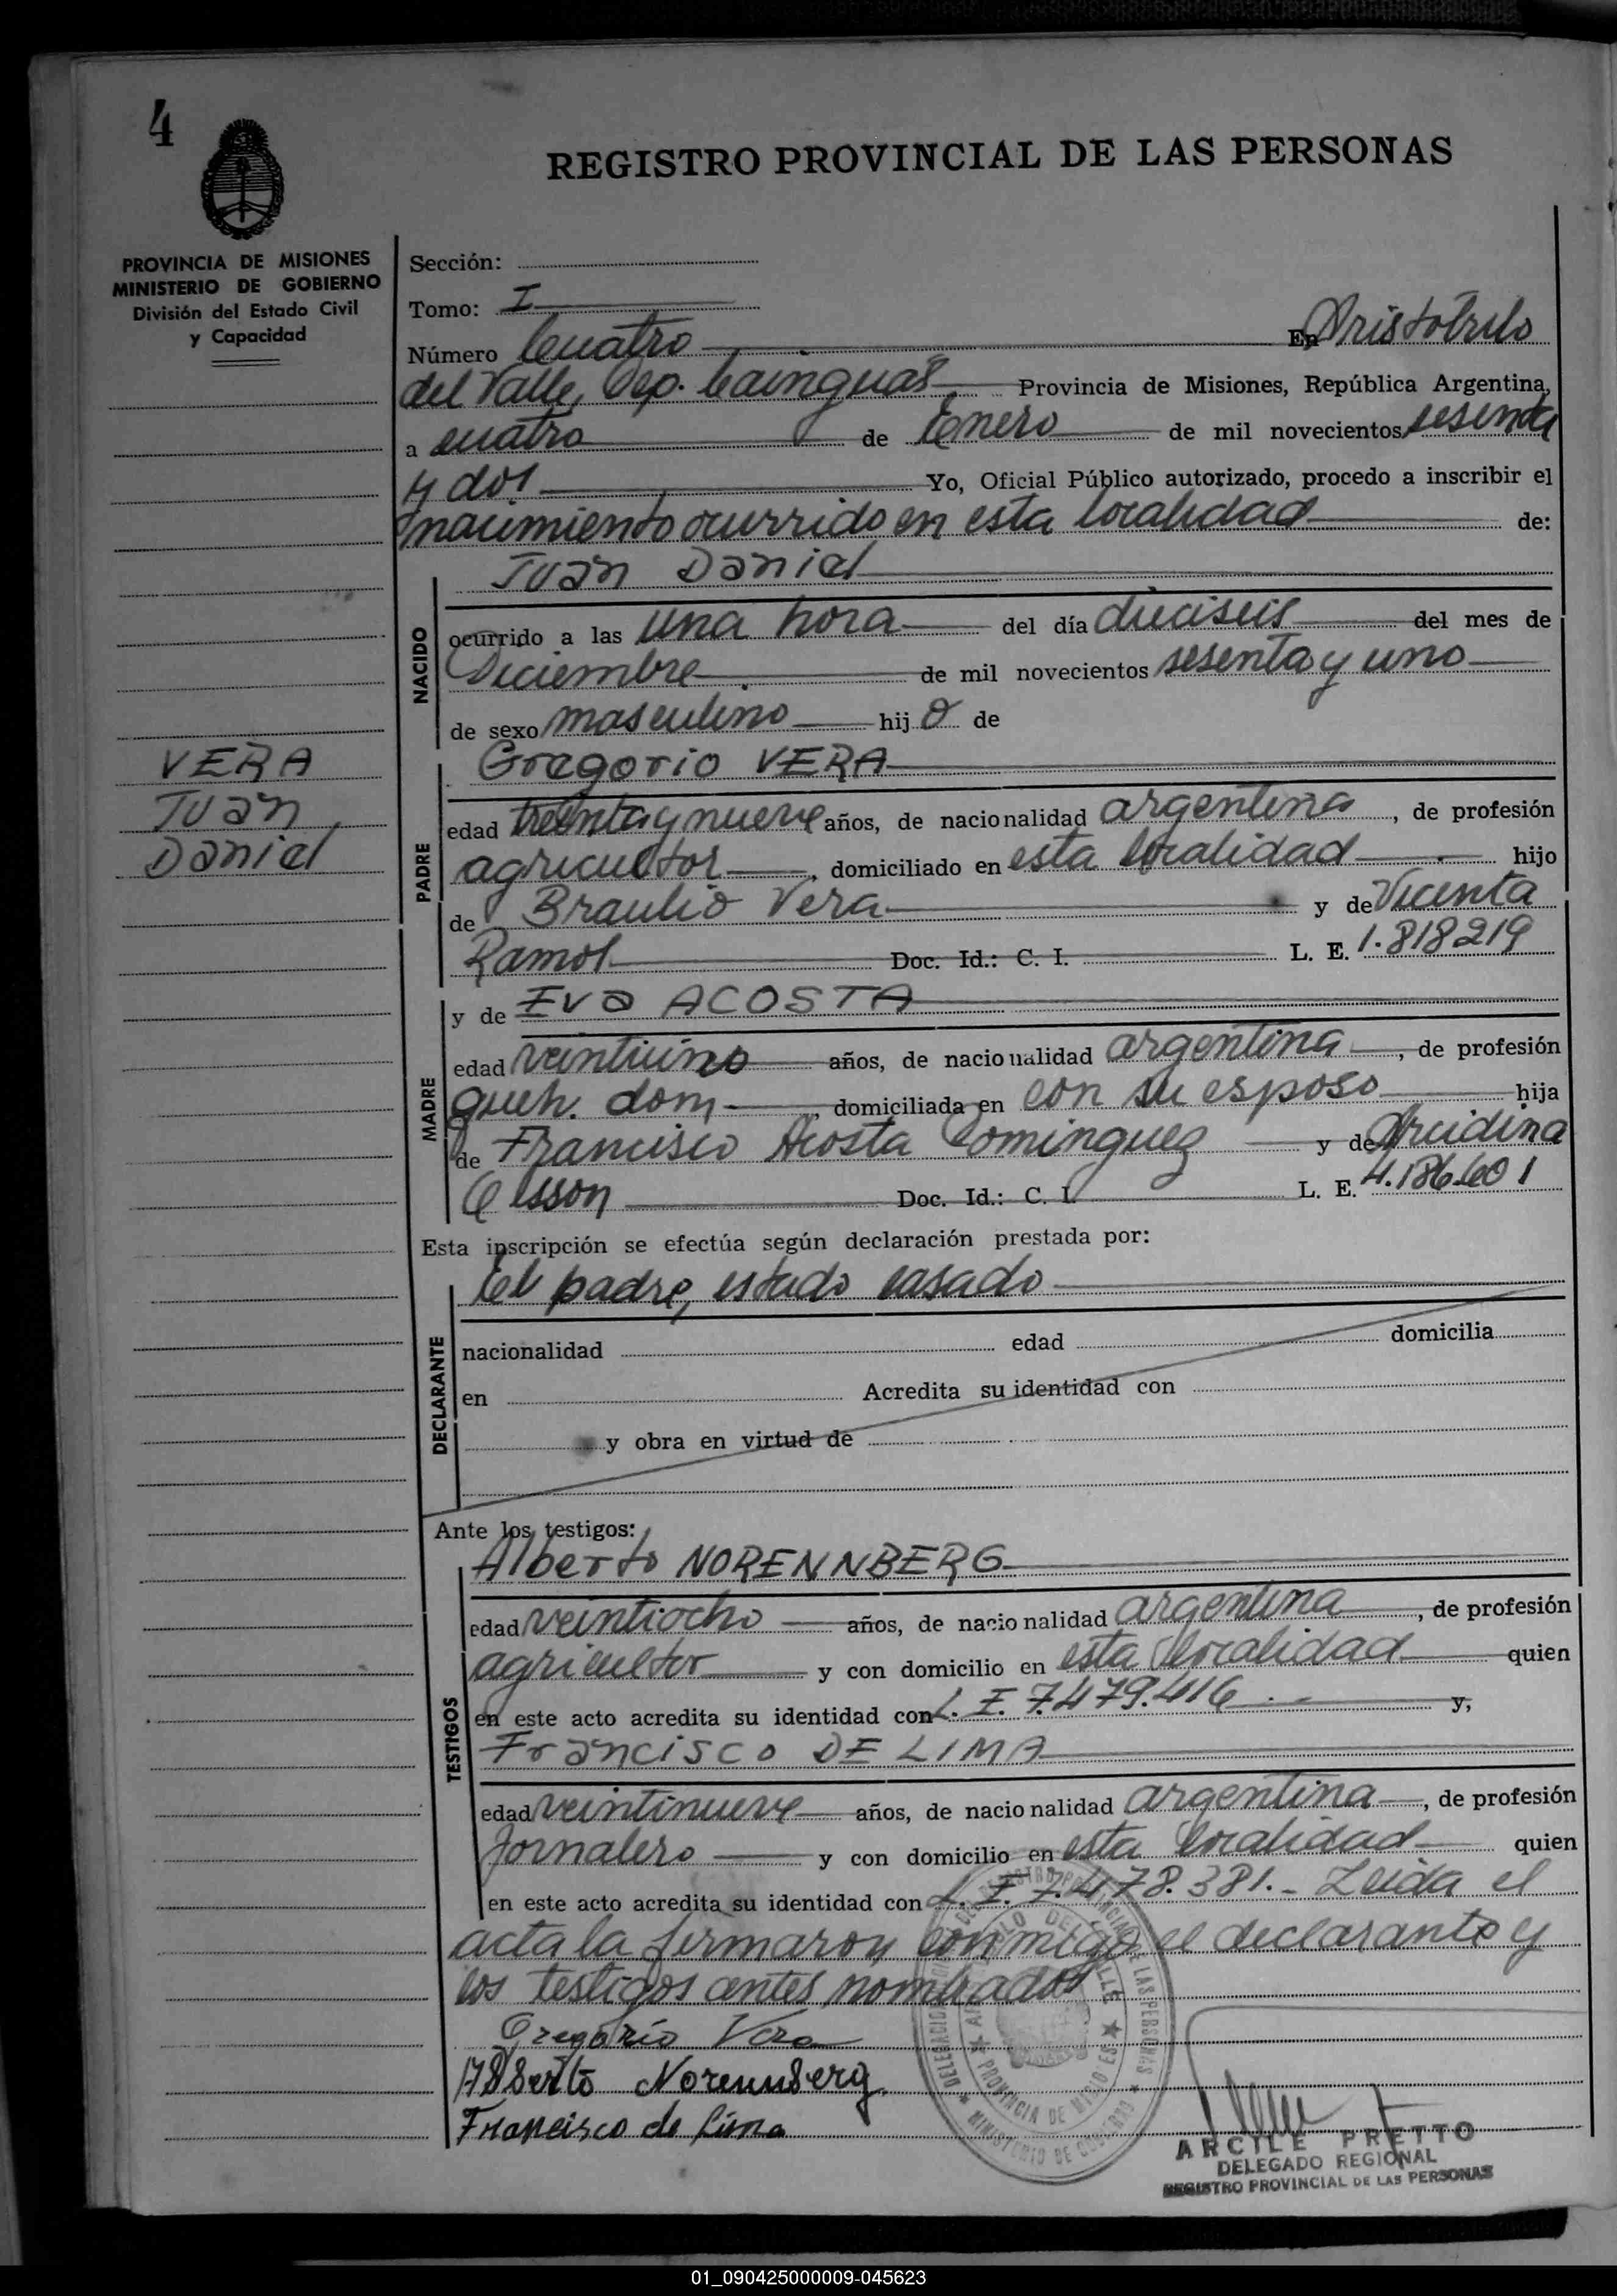 4
REGISTRO PROVINCIAL DE LAS PERSONAS
PROVINCIA DE MISIONES
MINISTERIO DE GOBIERNO
División del Estado Civil
y Capacidad
Sección:
Tomo: I
Número Cuatro En Aristóbulo
del Valle, Dep. Cainguas Provincia de Misiones, República Argentina,
a cuatro de Enero de mil novecientos sesenta
y dos Yo, Oficial Público autorizado, procedo a inscribir el
nacimiento ocurrido en esta localidad de:
Juan Daniel
NACIDO
ocurrido a las una hora del día dieciseis del mes de
Diciembre de mil novecientos sesenta y uno
de sexo masculino hijo de
VERA
Juan
Daniel
Gregorio VERA
PADRE
edad treinta y nueve años, de nacionalidad argentina, de profesión
agricultor, domiciliado en esta localidad hijo
de Braulio Vera y de Vicenta
Ramos Doc. Id.: C. I. L. E. 1.818219
y de Eva ACOSTA
MADRE
edad veintiuno años, de nacionalidad argentina, de profesión
queh. dom, domiciliada en con su esposo hija
de Francisco Acosta Dominguez y de
Olsson Doc. Id.: C. I. L. E. 4.186.601
Esta inscripción se efectúa según declaración prestada por:
El padre, estado casado
DECLARANTE
nacionalidad edad domicilia
en Acredita su identidad con
y obra en virtud de
Ante los testigos:
Alberto NORENNBERG
TESTIGOS
edad veintiocho años, de nacionalidad argentina, de profesión
agricultor y con domicilio en esta localidad quien
en este acto acredita su identidad con L. E. 7.479.416 y,
Francisco DE LIMA
edad veintinueve años, de nacionalidad argentina, de profesión
Jornalero y con domicilio en esta localidad quien
en este acto acredita su identidad con L. E. 7.478.381.- Leida el
acta la firmaron conmigo el declarante y
los testigos antes nombrados
Gregorio Vera
Alberto Norennberg
Francisco de Lima
ARCILE PRETTO
DELEGADO REGIONAL
REGISTRO PROVINCIAL DE LAS PERSONAS
01_090425000009-045623